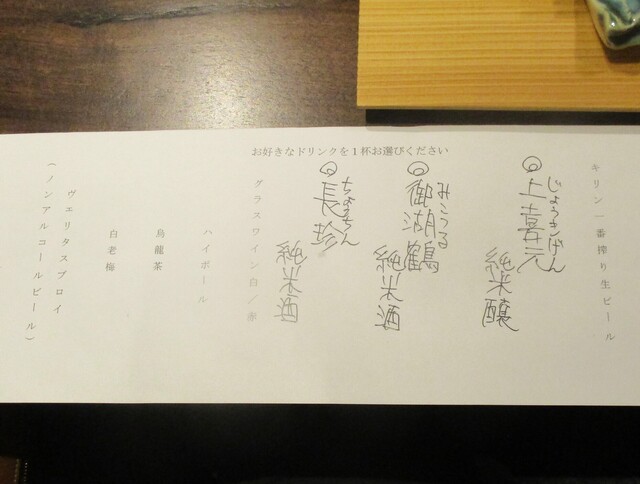 お好きなドリンクを1杯お選びください
キリン一番搾り生ビール
じょうきげん
◎上喜元
純米醸
みこつる
◎御湖鶴
純米酒
ちょうちん
◎長珍
純米酒
グラスワイン白/赤
ハイボール
烏龍茶
白老梅
ヴェリタスブロイ
(ノンアルコールビール)